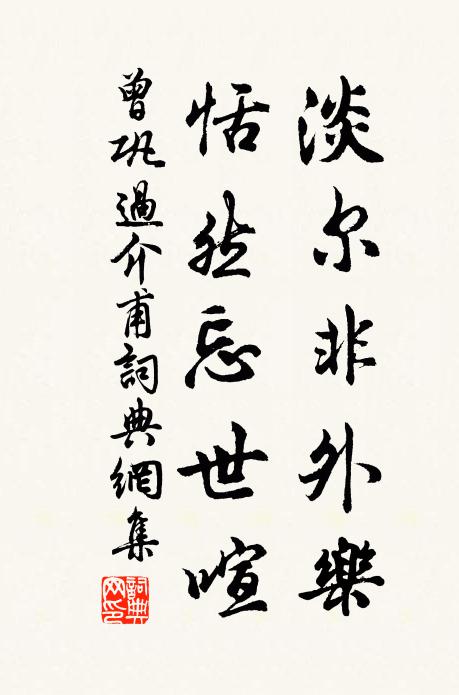 淡尔非外樂
恬然忘世喧
曾巩過介甫詞典網集
詞典网印